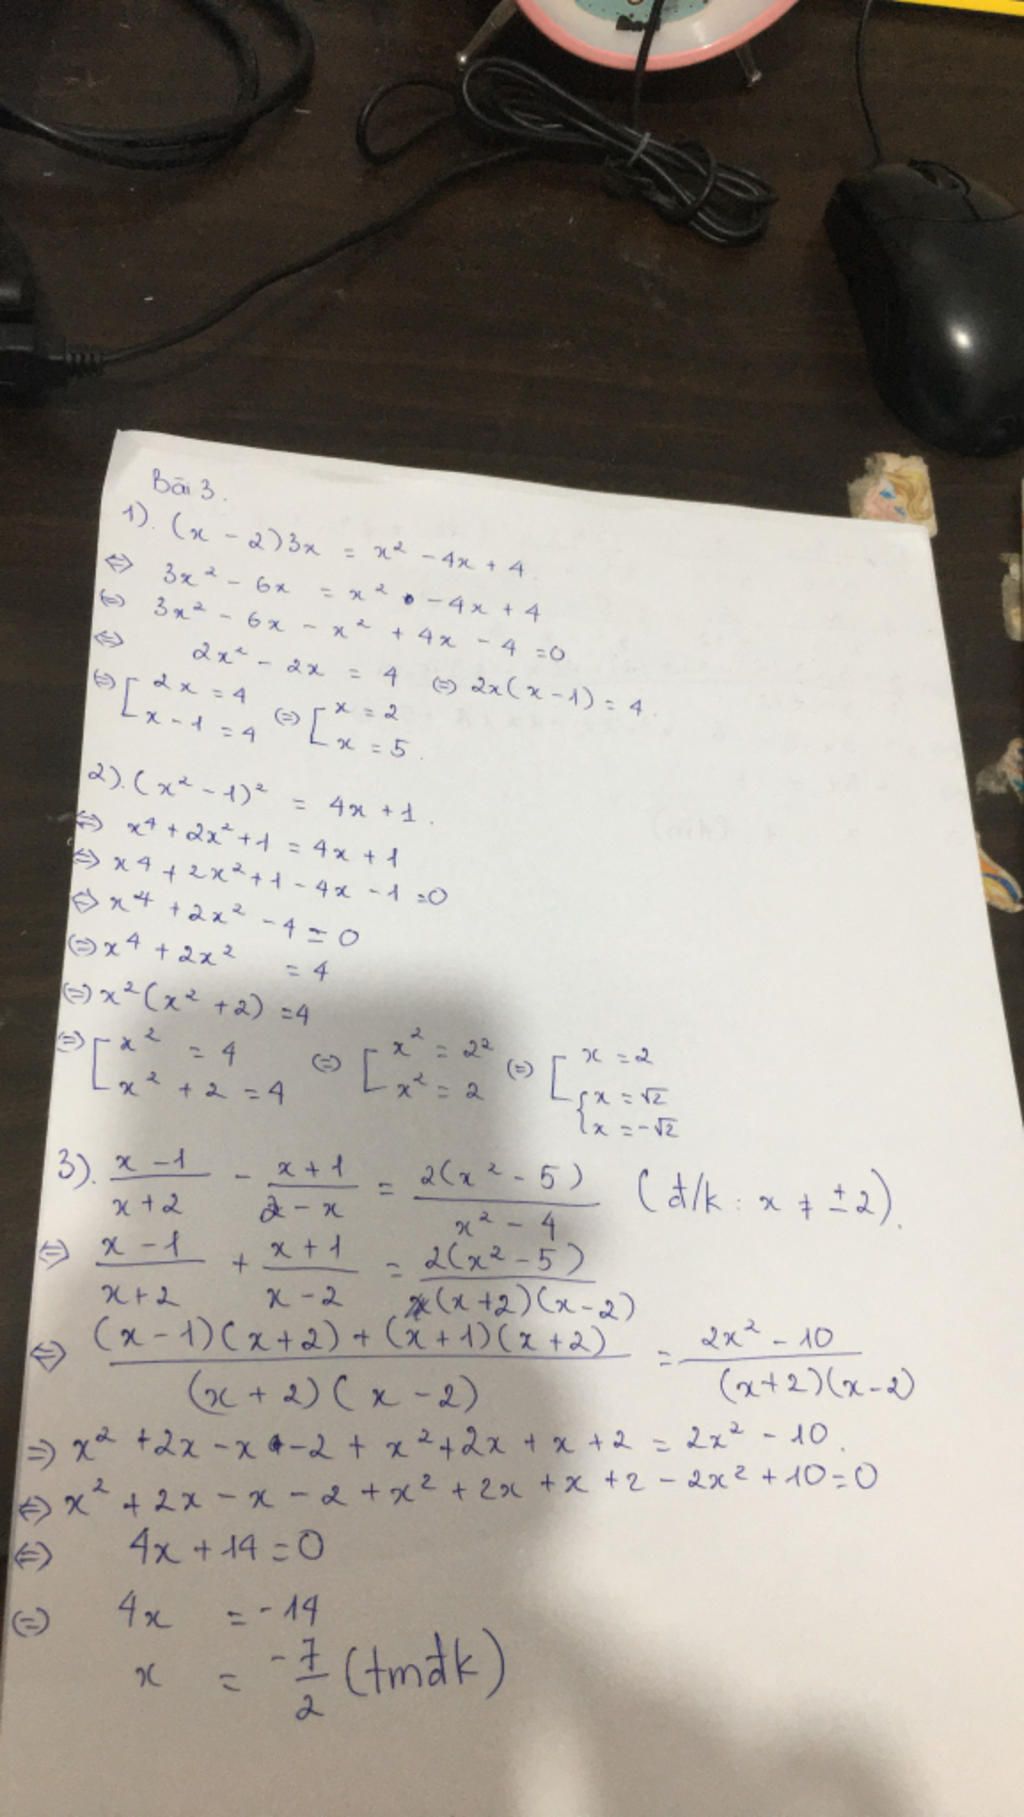 Bài 3.
1). (x - 2)3x = x² - 4x + 4.
⇔ 3x² - 6x = x² - 4x + 4
⇔ 3x² - 6x - x² + 4x - 4 = 0
⇔ 2x² - 2x = 4 ⇔ 2x(x - 1) = 4.
⇔ [ 2x = 4 ⇔ [ x = 2
x - 1 = 4 x = 5.
2). (x² - 1)² = 4x + 1.
⇔ x⁴ + 2x² + 1 = 4x + 1
⇔ x⁴ + 2x² + 1 - 4x - 1 = 0
⇔ x⁴ + 2x² - 4 = 0
⇔ x⁴ + 2x² = 4
⇔ x²(x² + 2) = 4
⇔ [ x² = 4 ⇔ [ x² = 2² ⇔ [ x = 2
x² + 2 = 4 x² = 2 { x = √2
x = -√2
3). (x - 1)/(x + 2) - (x + 1)/(2 - x) = 2(x² - 5)/(x² - 4) (đ/k : x ≠ ±2).
⇔ (x - 1)/(x + 2) + (x + 1)/(x - 2) = 2(x² - 5)/((x + 2)(x - 2))
⇔ ((x - 1)(x + 2) + (x + 1)(x + 2))/((x + 2)(x - 2)) = (2x² - 10)/((x + 2)(x - 2))
⇒ x² + 2x - x - 2 + x² + 2x + x + 2 = 2x² - 10.
⇔ x² + 2x - x - 2 + x² + 2x + x + 2 - 2x² + 10 = 0
⇔ 4x + 14 = 0
⇔ 4x = -14
x = -7/2 (tmđk)